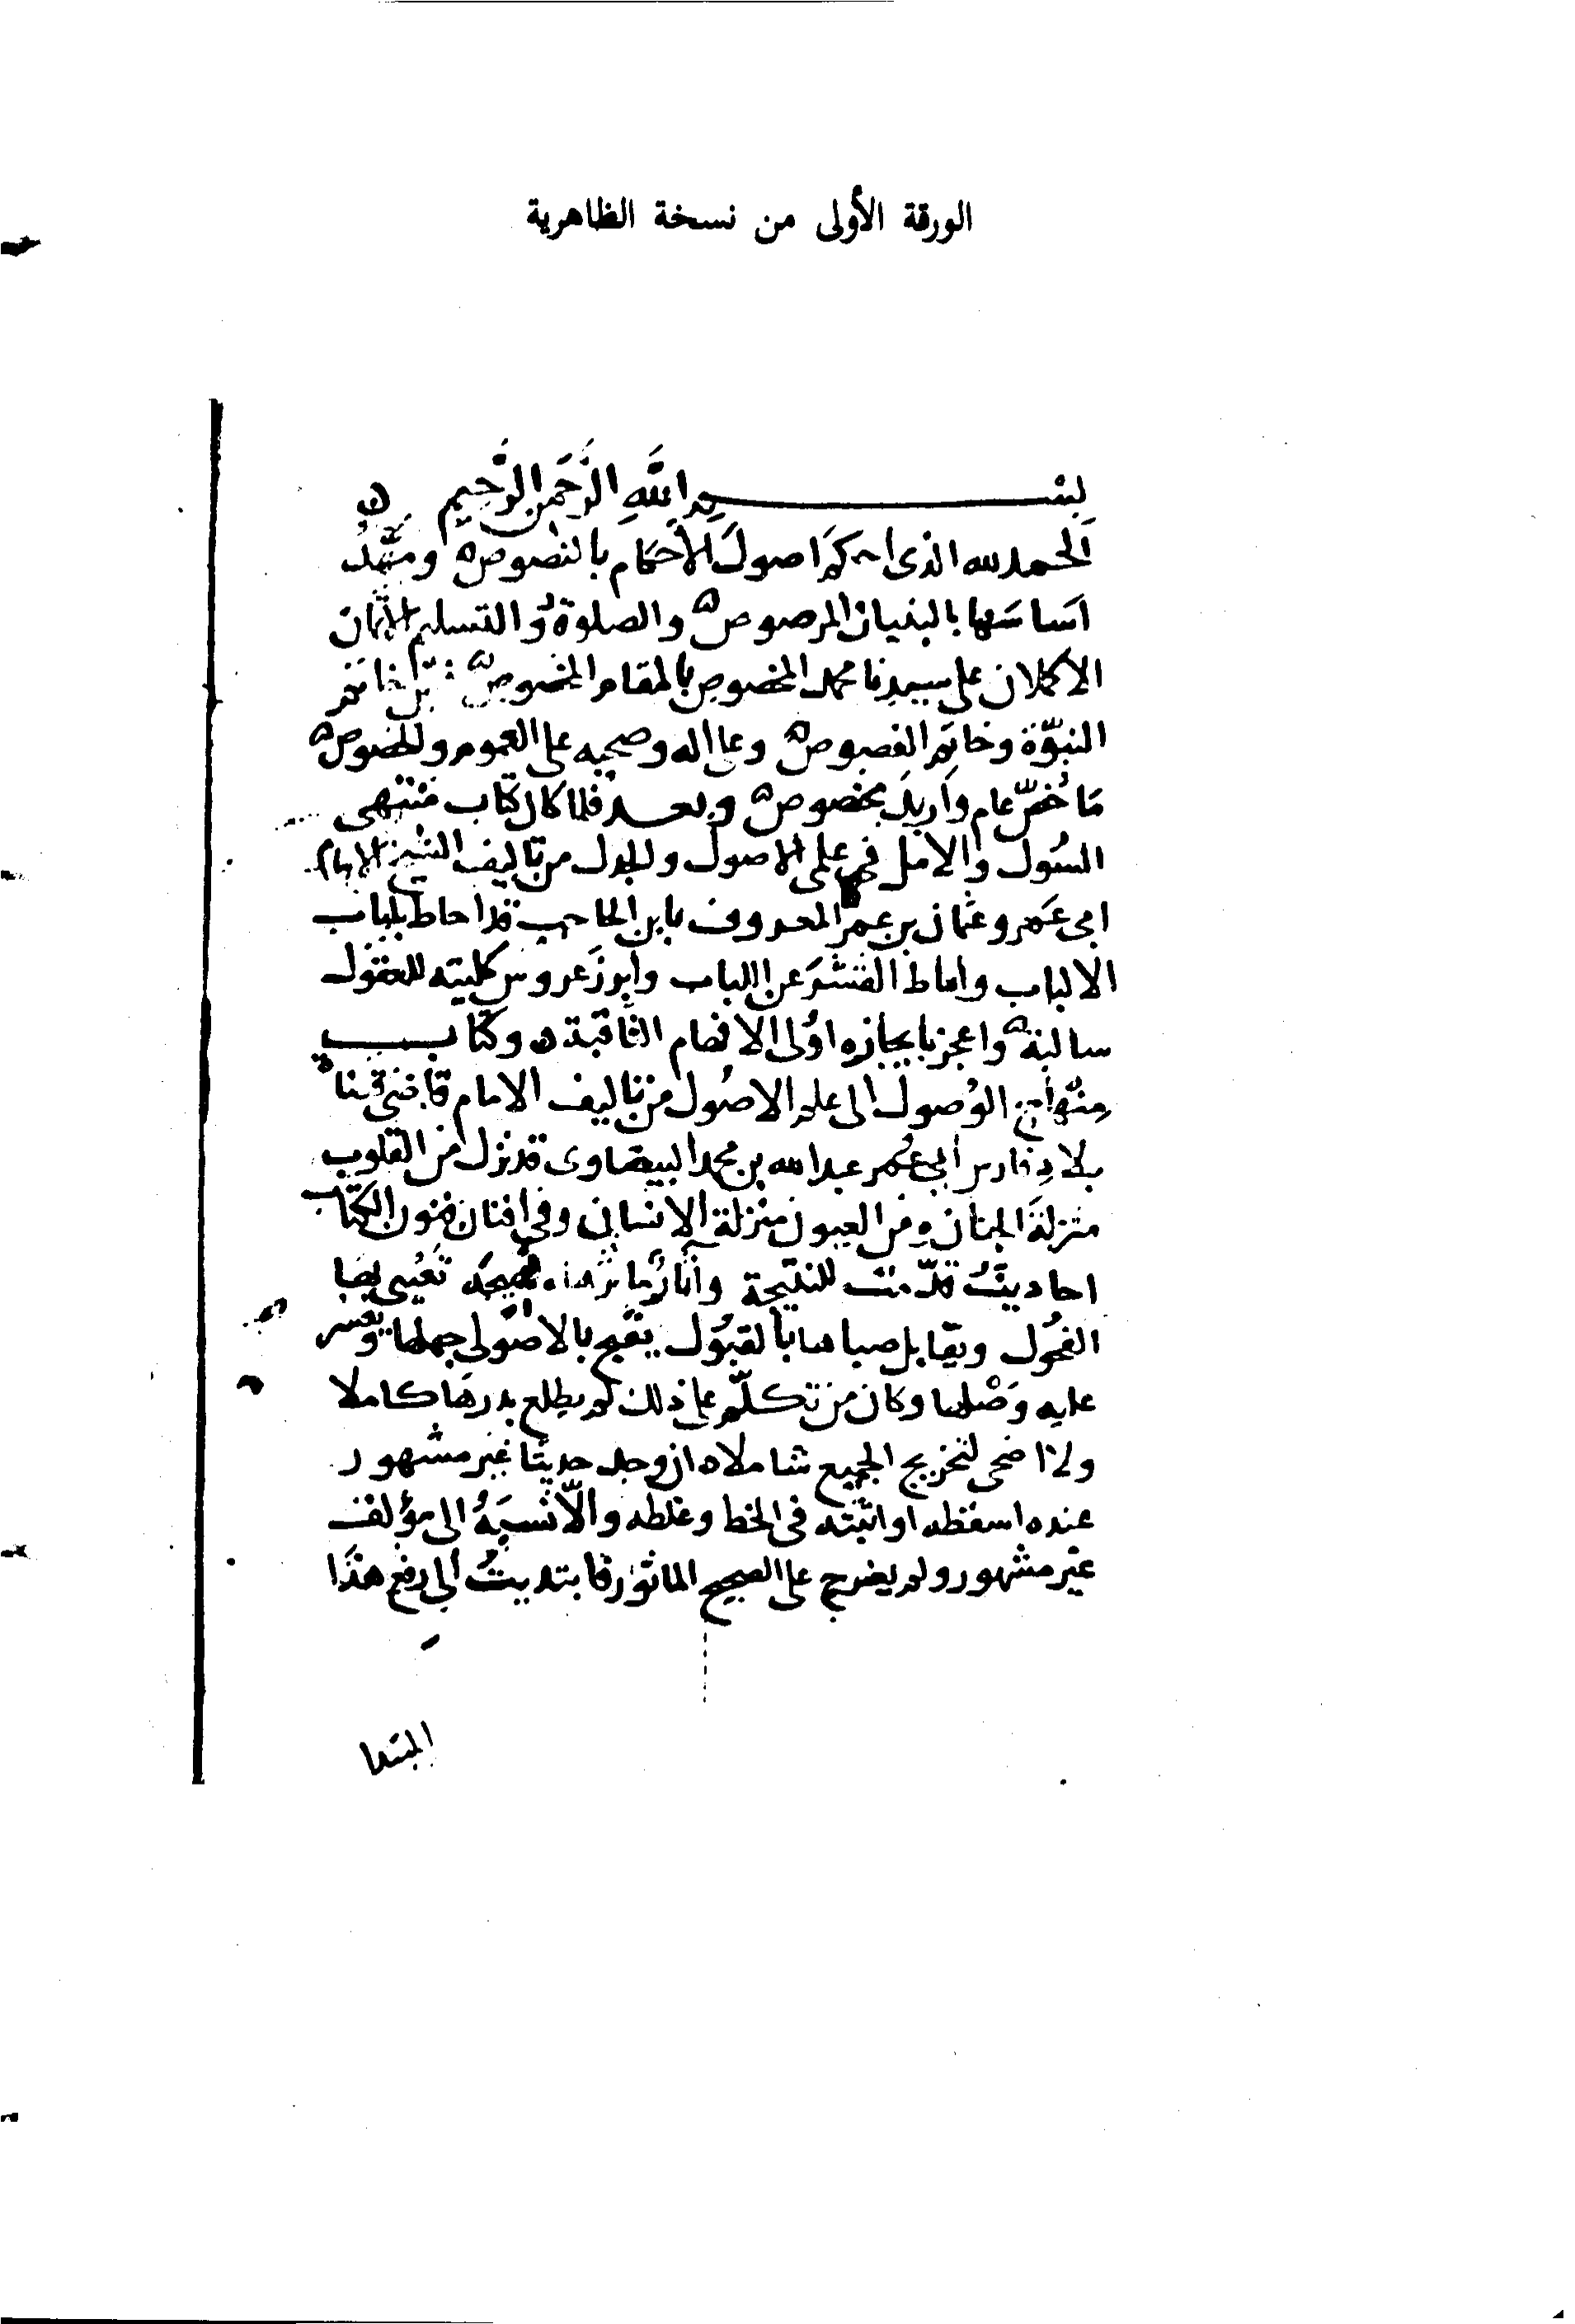 الورقة الأولى من نسخة الظاهرية
بسم الله الرحمن الرحيم
الحمد لله الذى احكم اصول الأحكام بالنصوص ومهد
اساسها بالبنيان المرصوص والصلوة والتسليم الاتمان
الاكملان على سيدنا محمد المخصوص بالمقام المخصوص خاتم
النبوة وخاتم الفصوص وعلى اله وصحبه على العموم والخصوص
ما خص عام واريد بخصوص وبعد فلما كان كتاب منتهى
السول والامل في علمى الاصول والجدل من تاليف الشيخ الامام
ابى عمرو عثمان بن عمر المعروف بابن الحاجب قد احاط بلباب
الالباب واماط القشر عن اللباب وابرز عروس كليته للعقول
سالبة واعجز بايجازه اولى الافهام الثاقبة وكتاب
منهاج الوصول الى علم الاصول من تاليف الامام قاضى قضاة
بلاد فارس ابى عمر عبد الله بن محمد البيضاوى قد نزل من القلوب
منزلة الجنان ومن العيون منزلة الانسان وفى افنان فنون الكتاب
احاديث قدمت للنتيجة وآثار
الفحول وتقابل صباها بالقبول يقبح بالاصولى جهلها ويعسر
عليه وصلها وكان من تكلم على ذلك لم يطلع بدرها كاملا
ولا اضحى لتخريج الجميع شاملا ان وجد حديثا غير مشهور
عنده اسقطه او اثبته فى الخط وغلطه والا نسبه الى مؤلف
غير مشهور ولم يعرج على الصحيح الماثور فابتدبت الى رفع هذا